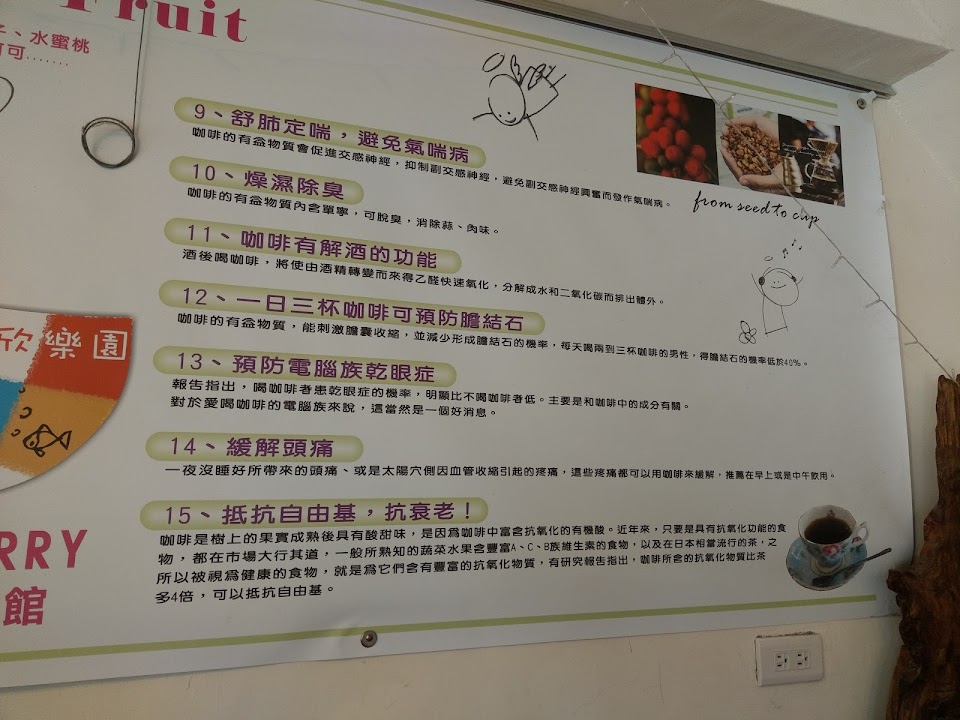 Fruit
、水蜜桃
可可........
9、舒肺定喘，避免氣喘病
咖啡的有益物質會促進交感神經，抑制副交感神經，避免副交感神經興奮而發作氣喘病。
10、燥濕除臭
咖啡的有益物質內含單寧，可脫臭，消除蒜、肉味。
from seed to cup
11、咖啡有解酒的功能
酒後喝咖啡，將使由酒精轉變而來得乙醛快速氧化，分解成水和二氧化碳而排出體外。
12、一日三杯咖啡可預防膽結石
咖啡的有益物質，能刺激膽囊收縮，並減少形成膽結石的機率，每天喝兩到三杯咖啡的男性，得膽結石的機率低於40%。
欣樂園
13、預防電腦族乾眼症
報告指出，喝咖啡者患乾眼症的機率，明顯比不喝咖啡者低。主要是和咖啡中的成分有關。
對於愛喝咖啡的電腦族來說，這當然是一個好消息。
14、緩解頭痛
一夜沒睡好所帶來的頭痛、或是太陽穴側因血管收縮引起的疼痛，這些疼痛都可以用咖啡來緩解，推薦在早上或是中午飲用。
15、抵抗自由基，抗衰老！
咖啡是樹上的果實成熟後具有酸甜味，是因為咖啡中富含抗氧化的有機酸。近年來，只要是具有抗氧化功能的食
物，都在市場大行其道，一般所熟知的蔬菜水果含豐富A、C、B族維生素的食物，以及在日本相當流行的茶，之
所以被視為健康的食物，就是為它們含有豐富的抗氧化物質，有研究報告指出，咖啡所含的抗氧化物質比茶
多4倍，可以抵抗自由基。
RRY
館